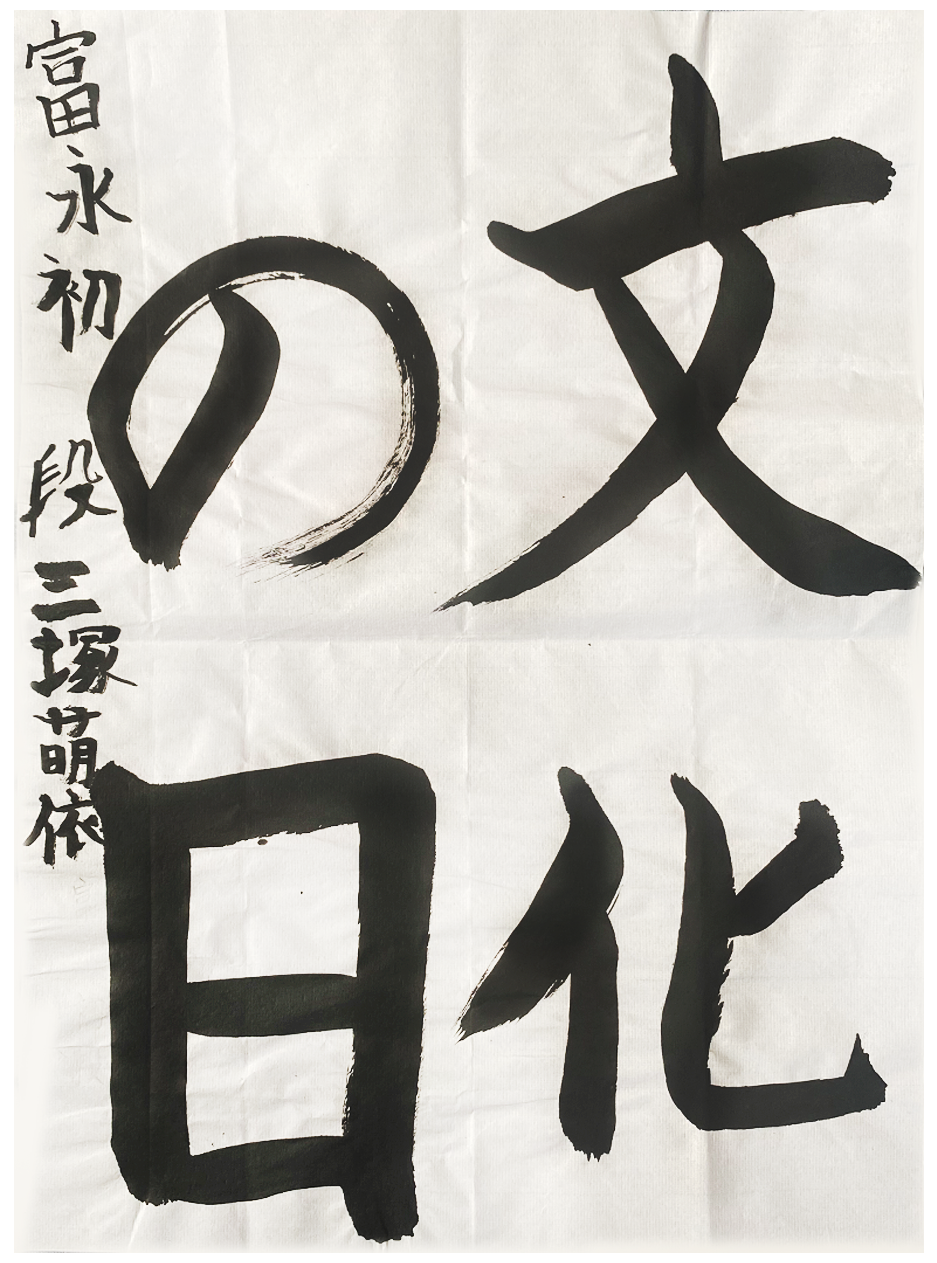 文化
の日
富永初段三塚萌依